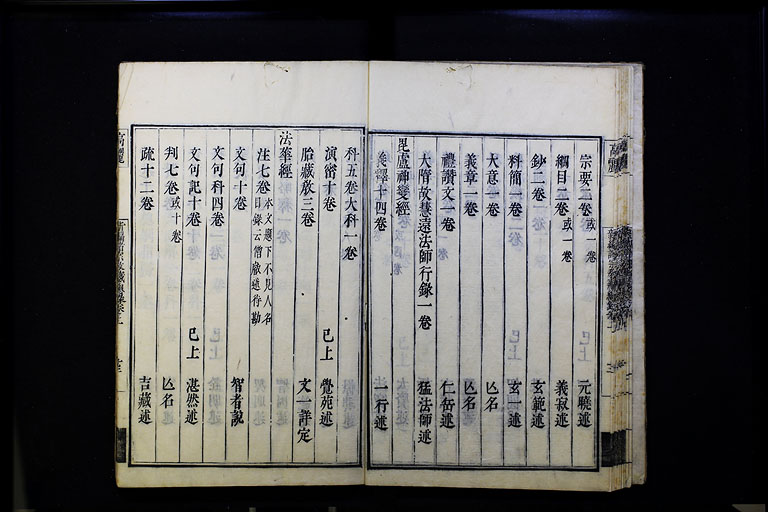 宗要二卷或一卷 元曉述
綱目二卷或一卷 義寂述
鈔二卷 玄範述
料簡一卷 玄一述
大意一卷 亾名
義章一卷 亾名
禮讚文一卷 仁岳述
大隋故慧遠法師行錄一卷 猛法師述
毘盧神變經
義釋十四卷 一行述
科五卷大科一卷
演密十卷 已上 覺苑述
胎藏教三卷 文一詳定
法華經
注七卷 本文題下不見人名 目錄云僧獻述待勘
文句十卷 智者說
文句科四卷
文句記十卷 已上 湛然述
判七卷或十卷 亾名
疏十二卷 吉藏述
高麗